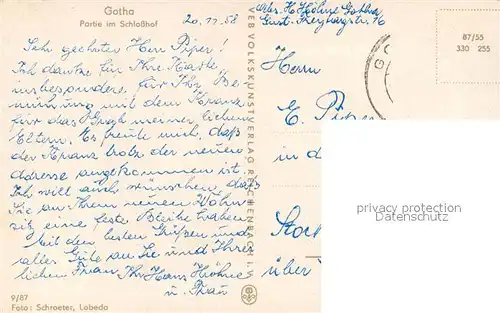 Gotha
Partie im Schloßhof
20.11.58
Sehr geehrter Herr Piper!
Ich danke für Ihre Karte,
insbesondere für Ihr Be-
mühung mit dem Kranz
für das Grab meiner lieben
Eltern. Es freute mich, daß
der Kranz trotz der neuen
Adresse angekommen ist.
Ich will auch wünschen, daß
Sie an Ihrem neuen Wohn
sitz eine feste Bleibe haben.
Mit den besten Grüßen und
alles Gute an Sie und Ihrer
lieben Frau Ihr Hans Höhne
u. Frau
9/87
Foto: Schroeter, Lobeda
VEB VOLKSKUNSTVERLAG REICHENBACH i.
Abs. H. Höhne Gotha
Gust. Freytagstr. 16
87/55
330 255
GO
Herrn
E. Piper
in
Stork
über
privat copyright
Ansichtskarten-Lexikon